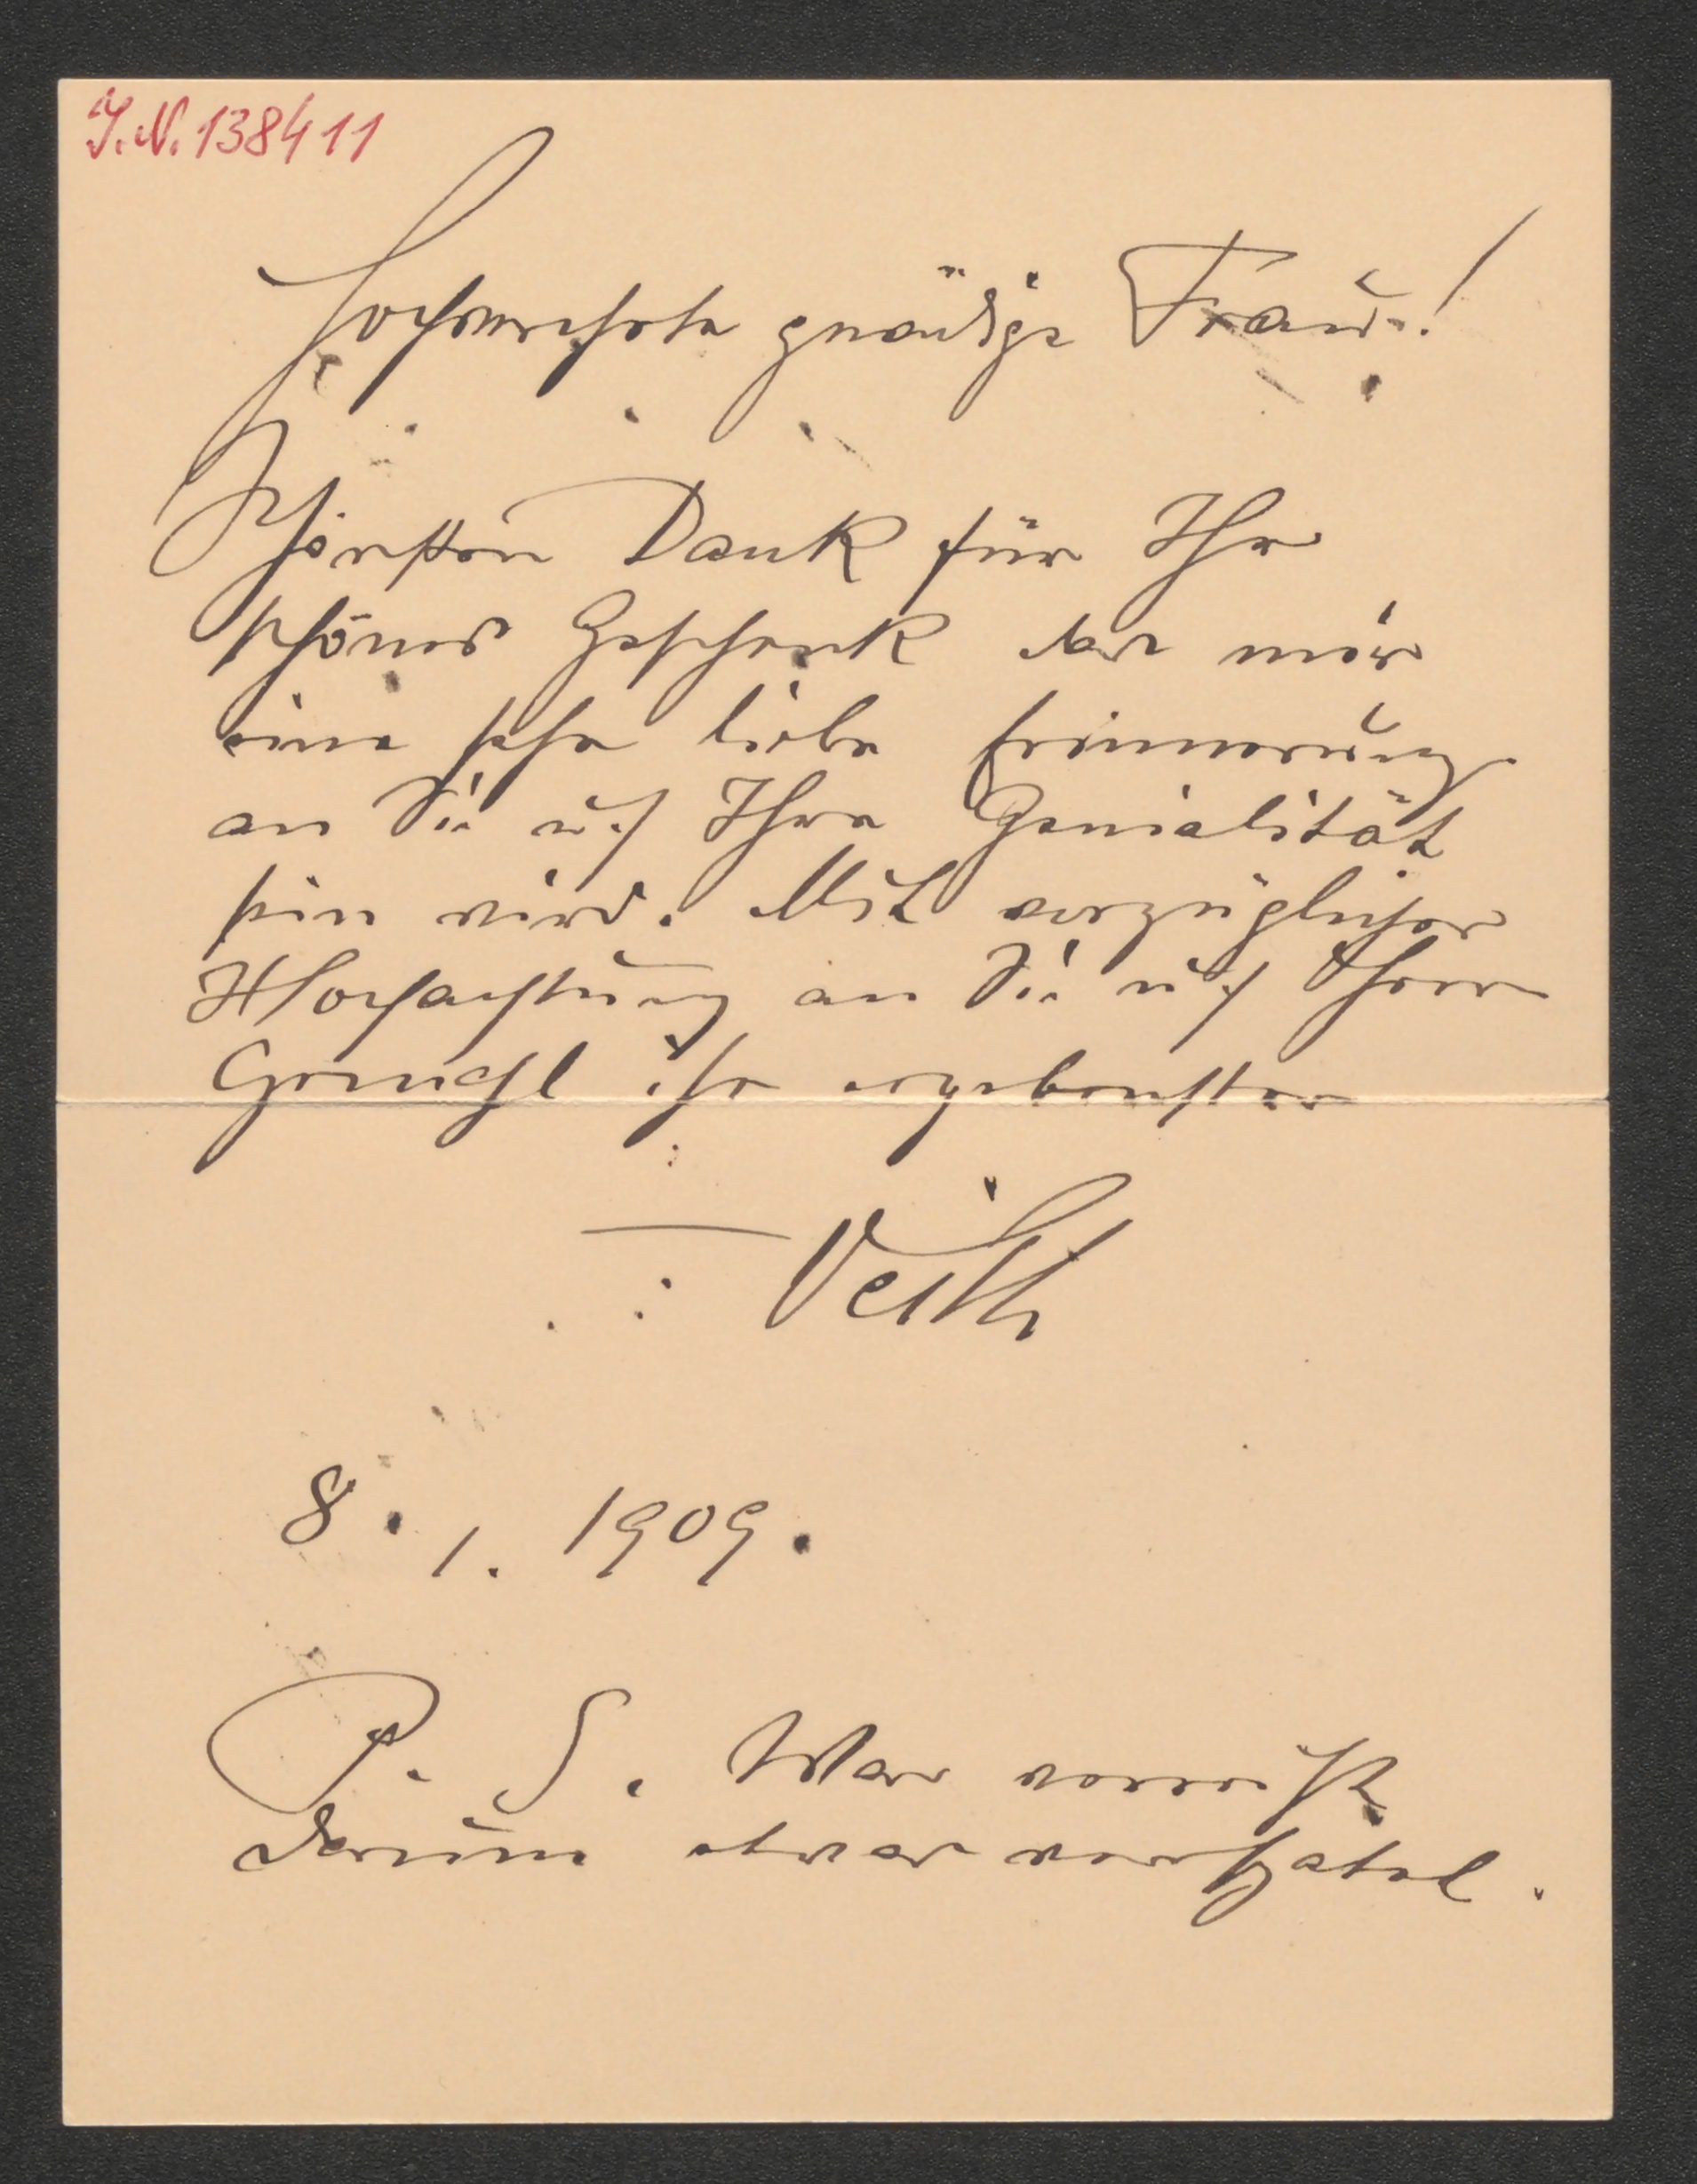 I.N. 138411
Hochverehrte gnädige Frau!
Schönsten Dank für Ihr
schönes Geschenk das mir
eine sehr liebe Erinnerung
an Sie u. Ihre Genialität
sein wird. Mit vorzüglicher
Hochachtung an Sie u.
Gemahl ihr ergebenster
Veith
8. 1. 1909.
P. S. War verreist
darum etwas verspätet.